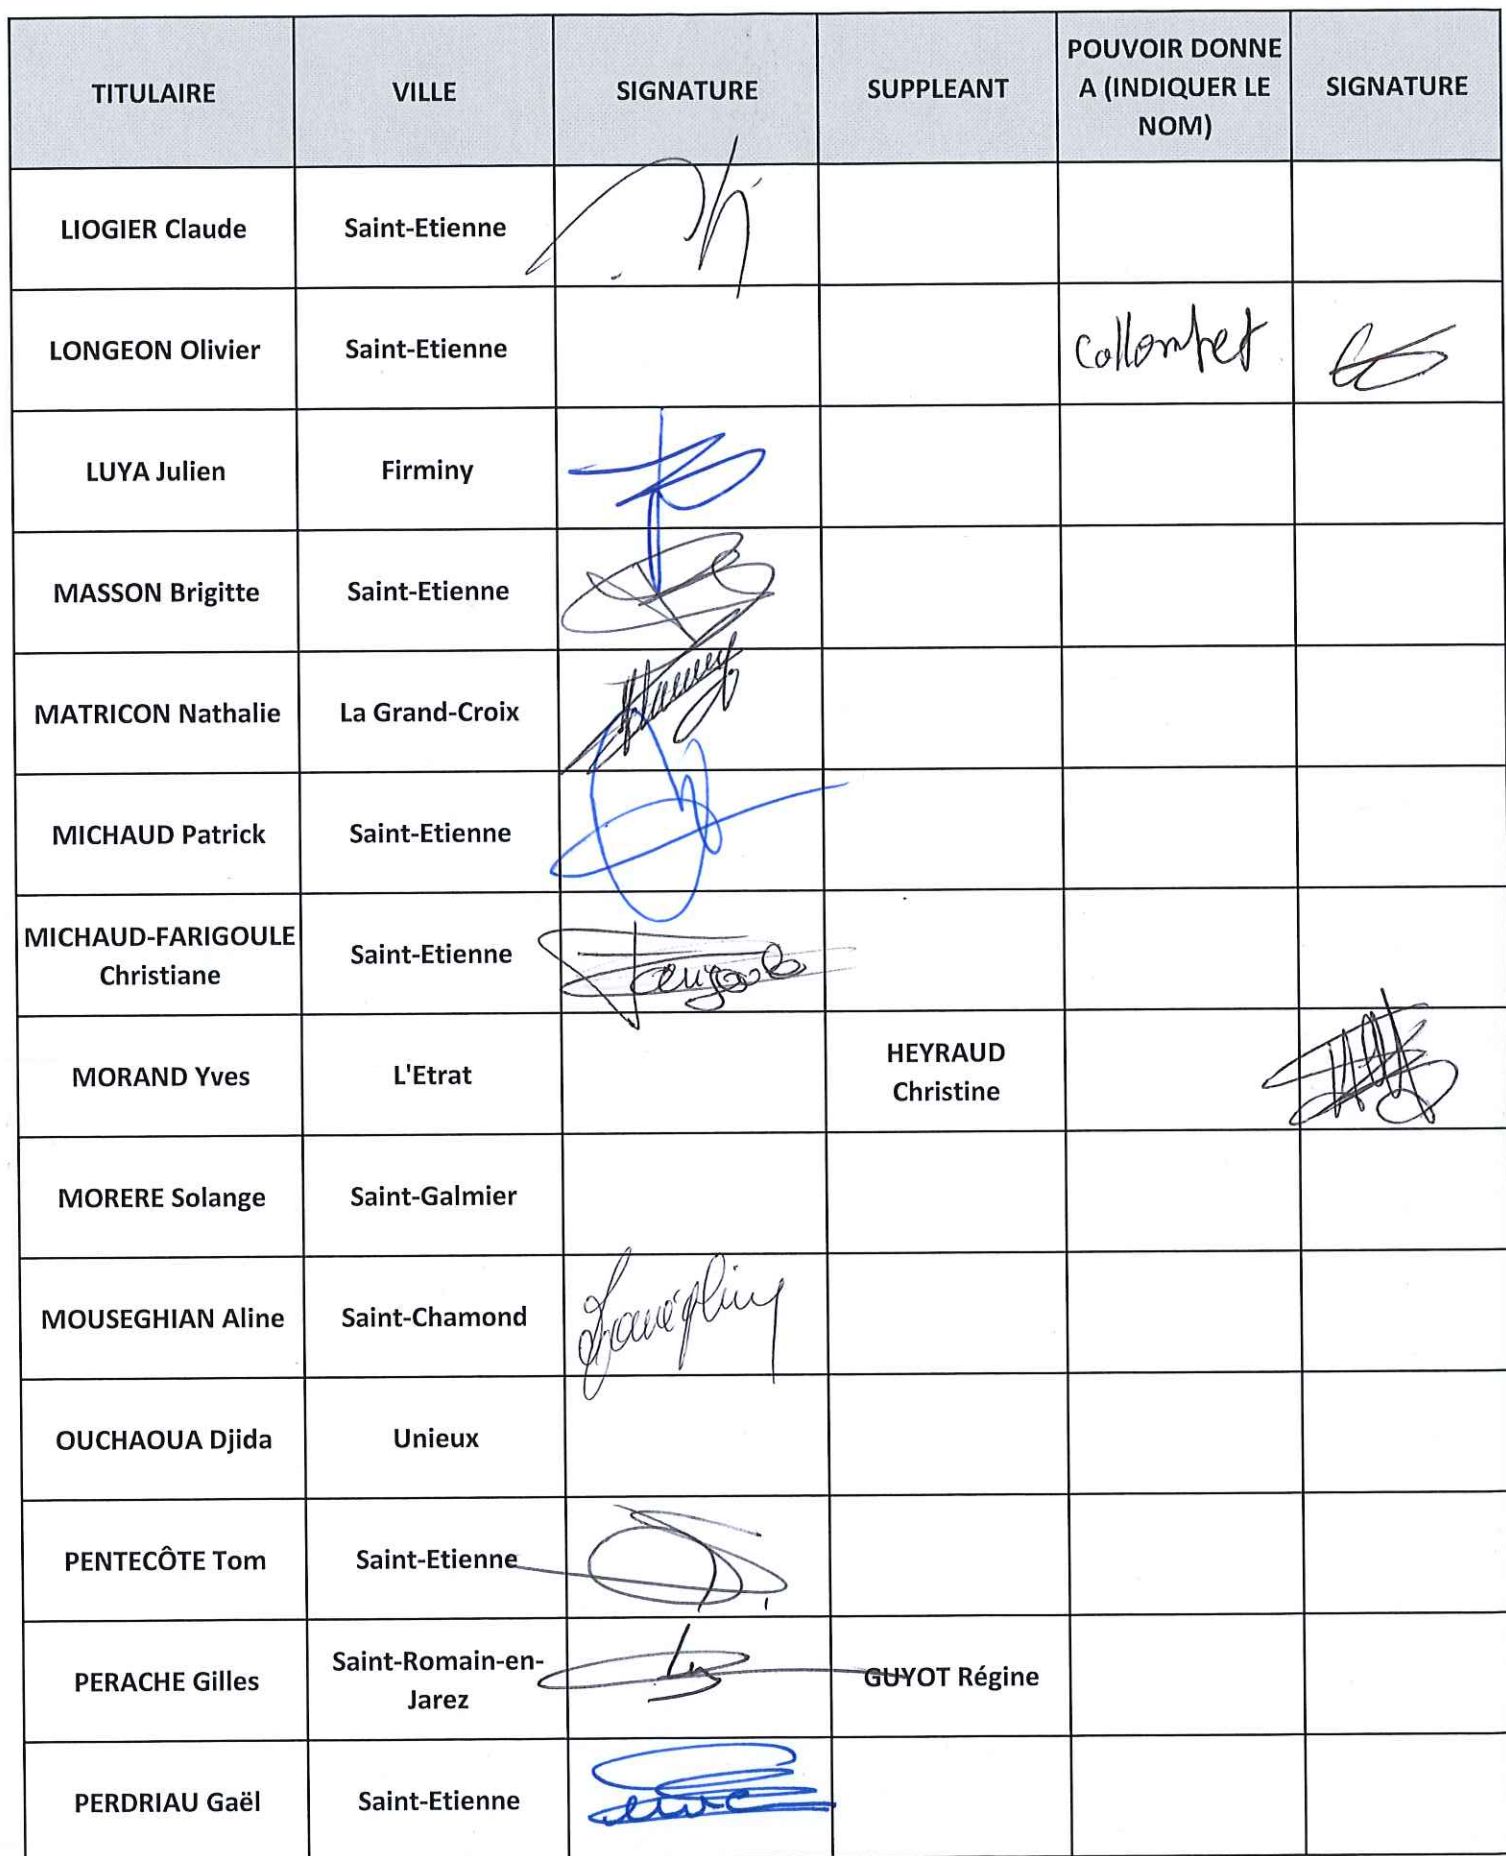 TITULAIRE
VILLE
SIGNATURE
SUPPLEANT
POUVOIR DONNE
A (INDIQUER LE
NOM)
SIGNATURE
LIOGIER Claude
Saint-Etienne
LONGEON Olivier
Saint-Etienne
Collombet
LUYA Julien
Firminy
MASSON Brigitte
Saint-Etienne
MATRICON Nathalie
La Grand-Croix
MICHAUD Patrick
Saint-Etienne
MICHAUD-FARIGOULE
Christiane
Saint-Etienne
MORAND Yves
L'Etrat
HEYRAUD
Christine
MORERE Solange
Saint-Galmier
MOUSEGHIAN Aline
Saint-Chamond
OUCHAOUA Djida
Unieux
PENTECÔTE Tom
Saint-Etienne
PERACHE Gilles
Saint-Romain-en-
Jarez
GUYOT Régine
PERDRIAU Gaël
Saint-Etienne